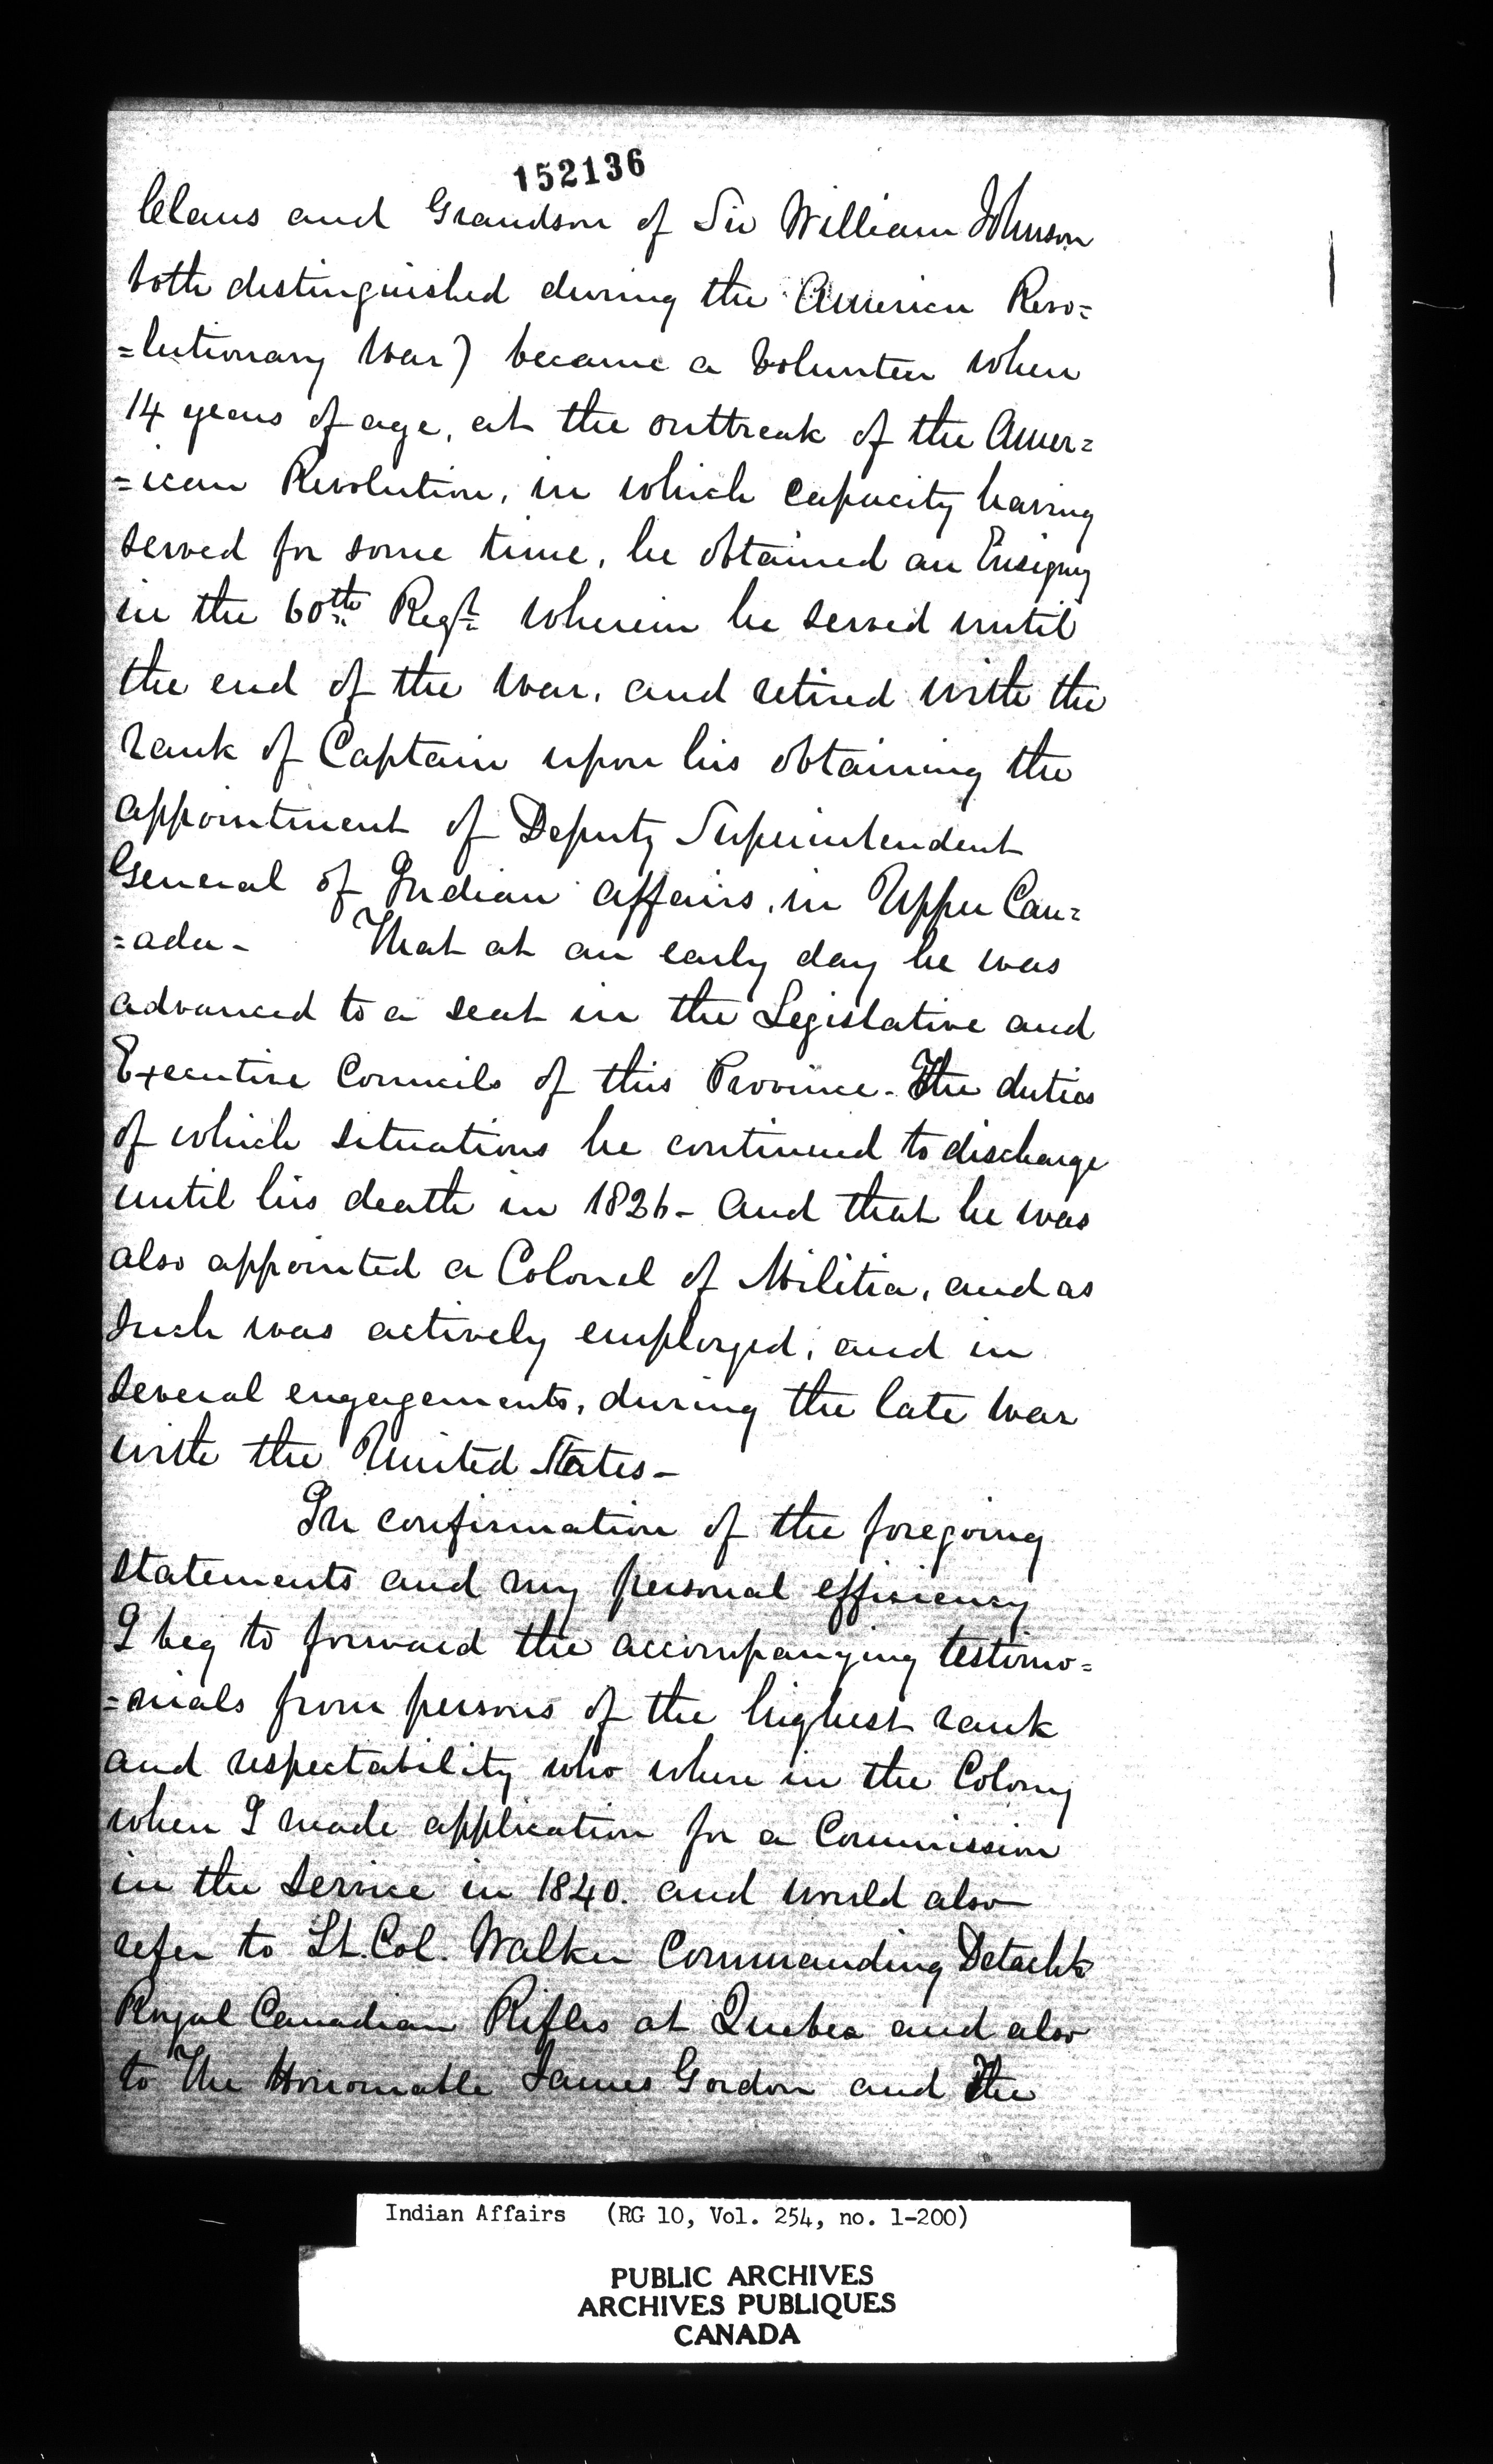 152136
Claus and Grandson of Sir William Johnson
both distinguished during the American Revo=
=lutionary War) became a Volunteer when
14 years of age, at the outbreak of the Amer=
=ican Revolution, in which capacity having
served for some time, he obtained an Ensigncy
in the 60th Regt wherein he served until
the end of the War, and retired with the
rank of Captain upon his obtaining the
appointment of Deputy Superintendent
General of Indian affairs, in Upper Can=
=ada - That at an early day he was
advanced to a seat in the Legislative and
Executive Councils of this Province - The duties
of which situations he continued to discharge
until his death in 1826 - and that he was
also appointed a Colonel of Militia, and as
such was actively employed, and in
several engagements, during the late War
with the United States -
In confirmation of the foregoing
statements and my personal efficiency
I beg to forward the accompanying testimo=
=nials from persons of the highest rank
and respectability who where in the Colony
when I made application for a Commission
in the Service in 1840. and would also
refer to Lt. Col. Walker Commanding Detacht
Royal Canadian Rifles at Quebec and also
to The Honorable James Gordon and The
Indian Affairs (RG 10, Vol. 254, no. 1-200)
PUBLIC ARCHIVES
ARCHIVES PUBLIQUES
CANADA